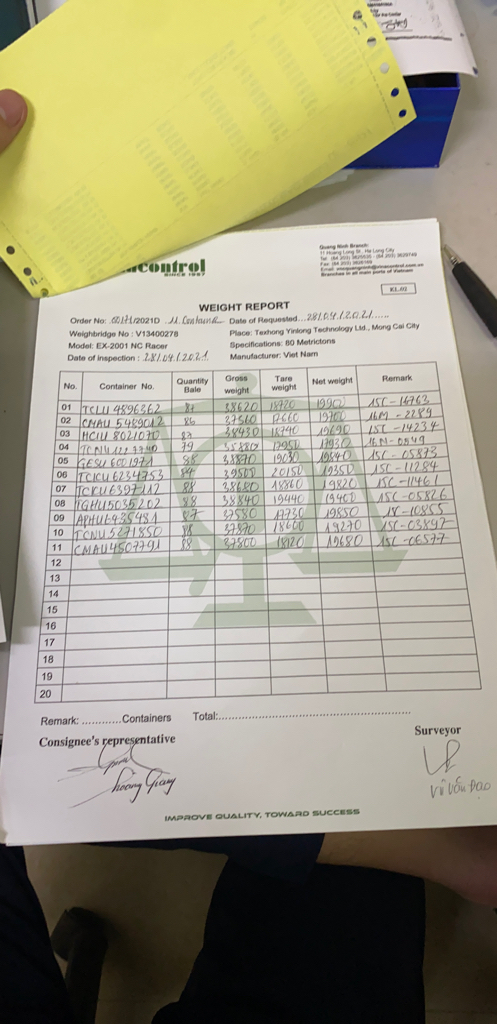 Quang Ninh Branch:
11 Hoang Long St., Ha Long City
Branches in all main ports of Vietnam
control
SINCE 1957
KL.02
WEIGHT REPORT
Order No: 00171/2021D 11 Container Date of Requested...28/04/2021.....
Weighbridge No : V13400278 Place: Texhong Yinlong Technology Ltd., Mong Cai City
Model: EX-2001 NC Racer Specifications: 80 Metrictons
Date of inspection : 28/04/2021 Manufacturer: Viet Nam
No. Container No. Quantity Bale Gross weight Tare weight Net weight Remark
01 TCLU 4896362 87 38620 18720 19900 15C-14763
02 CMAU 5489012 86 37360 17660 19700 16M-2289
03 HCIU 8021070 87 38430 18740 19690 15C-14234
04 79 35880 17950 17930 16N-0849
05 GESU 6001971 88 38870 19030 19840 15C-05873
06 TCKU 6234753 84 39500 20150 19350 15C-11284
07 TCKU 6397112 88 38680 18860 19820 15C-11461
08 TGHU 5035202 88 38840 19440 19400 15C-05826
09 APHU 6435481 87 37580 17730 19850 15C-10855
10 TCNU 5271850 88 37870 18600 19270 15C-03897
11 CMAU 4507791 88 37800 18120 19680 15C-06577
12
13
14
15
16
17
18
19
20
Remark: ............Containers Total:..........................................................
Consignee's representative Surveyor
Hoàng Giang
Vũ Văn Đạo
IMPROVE QUALITY, TOWARD SUCCESS